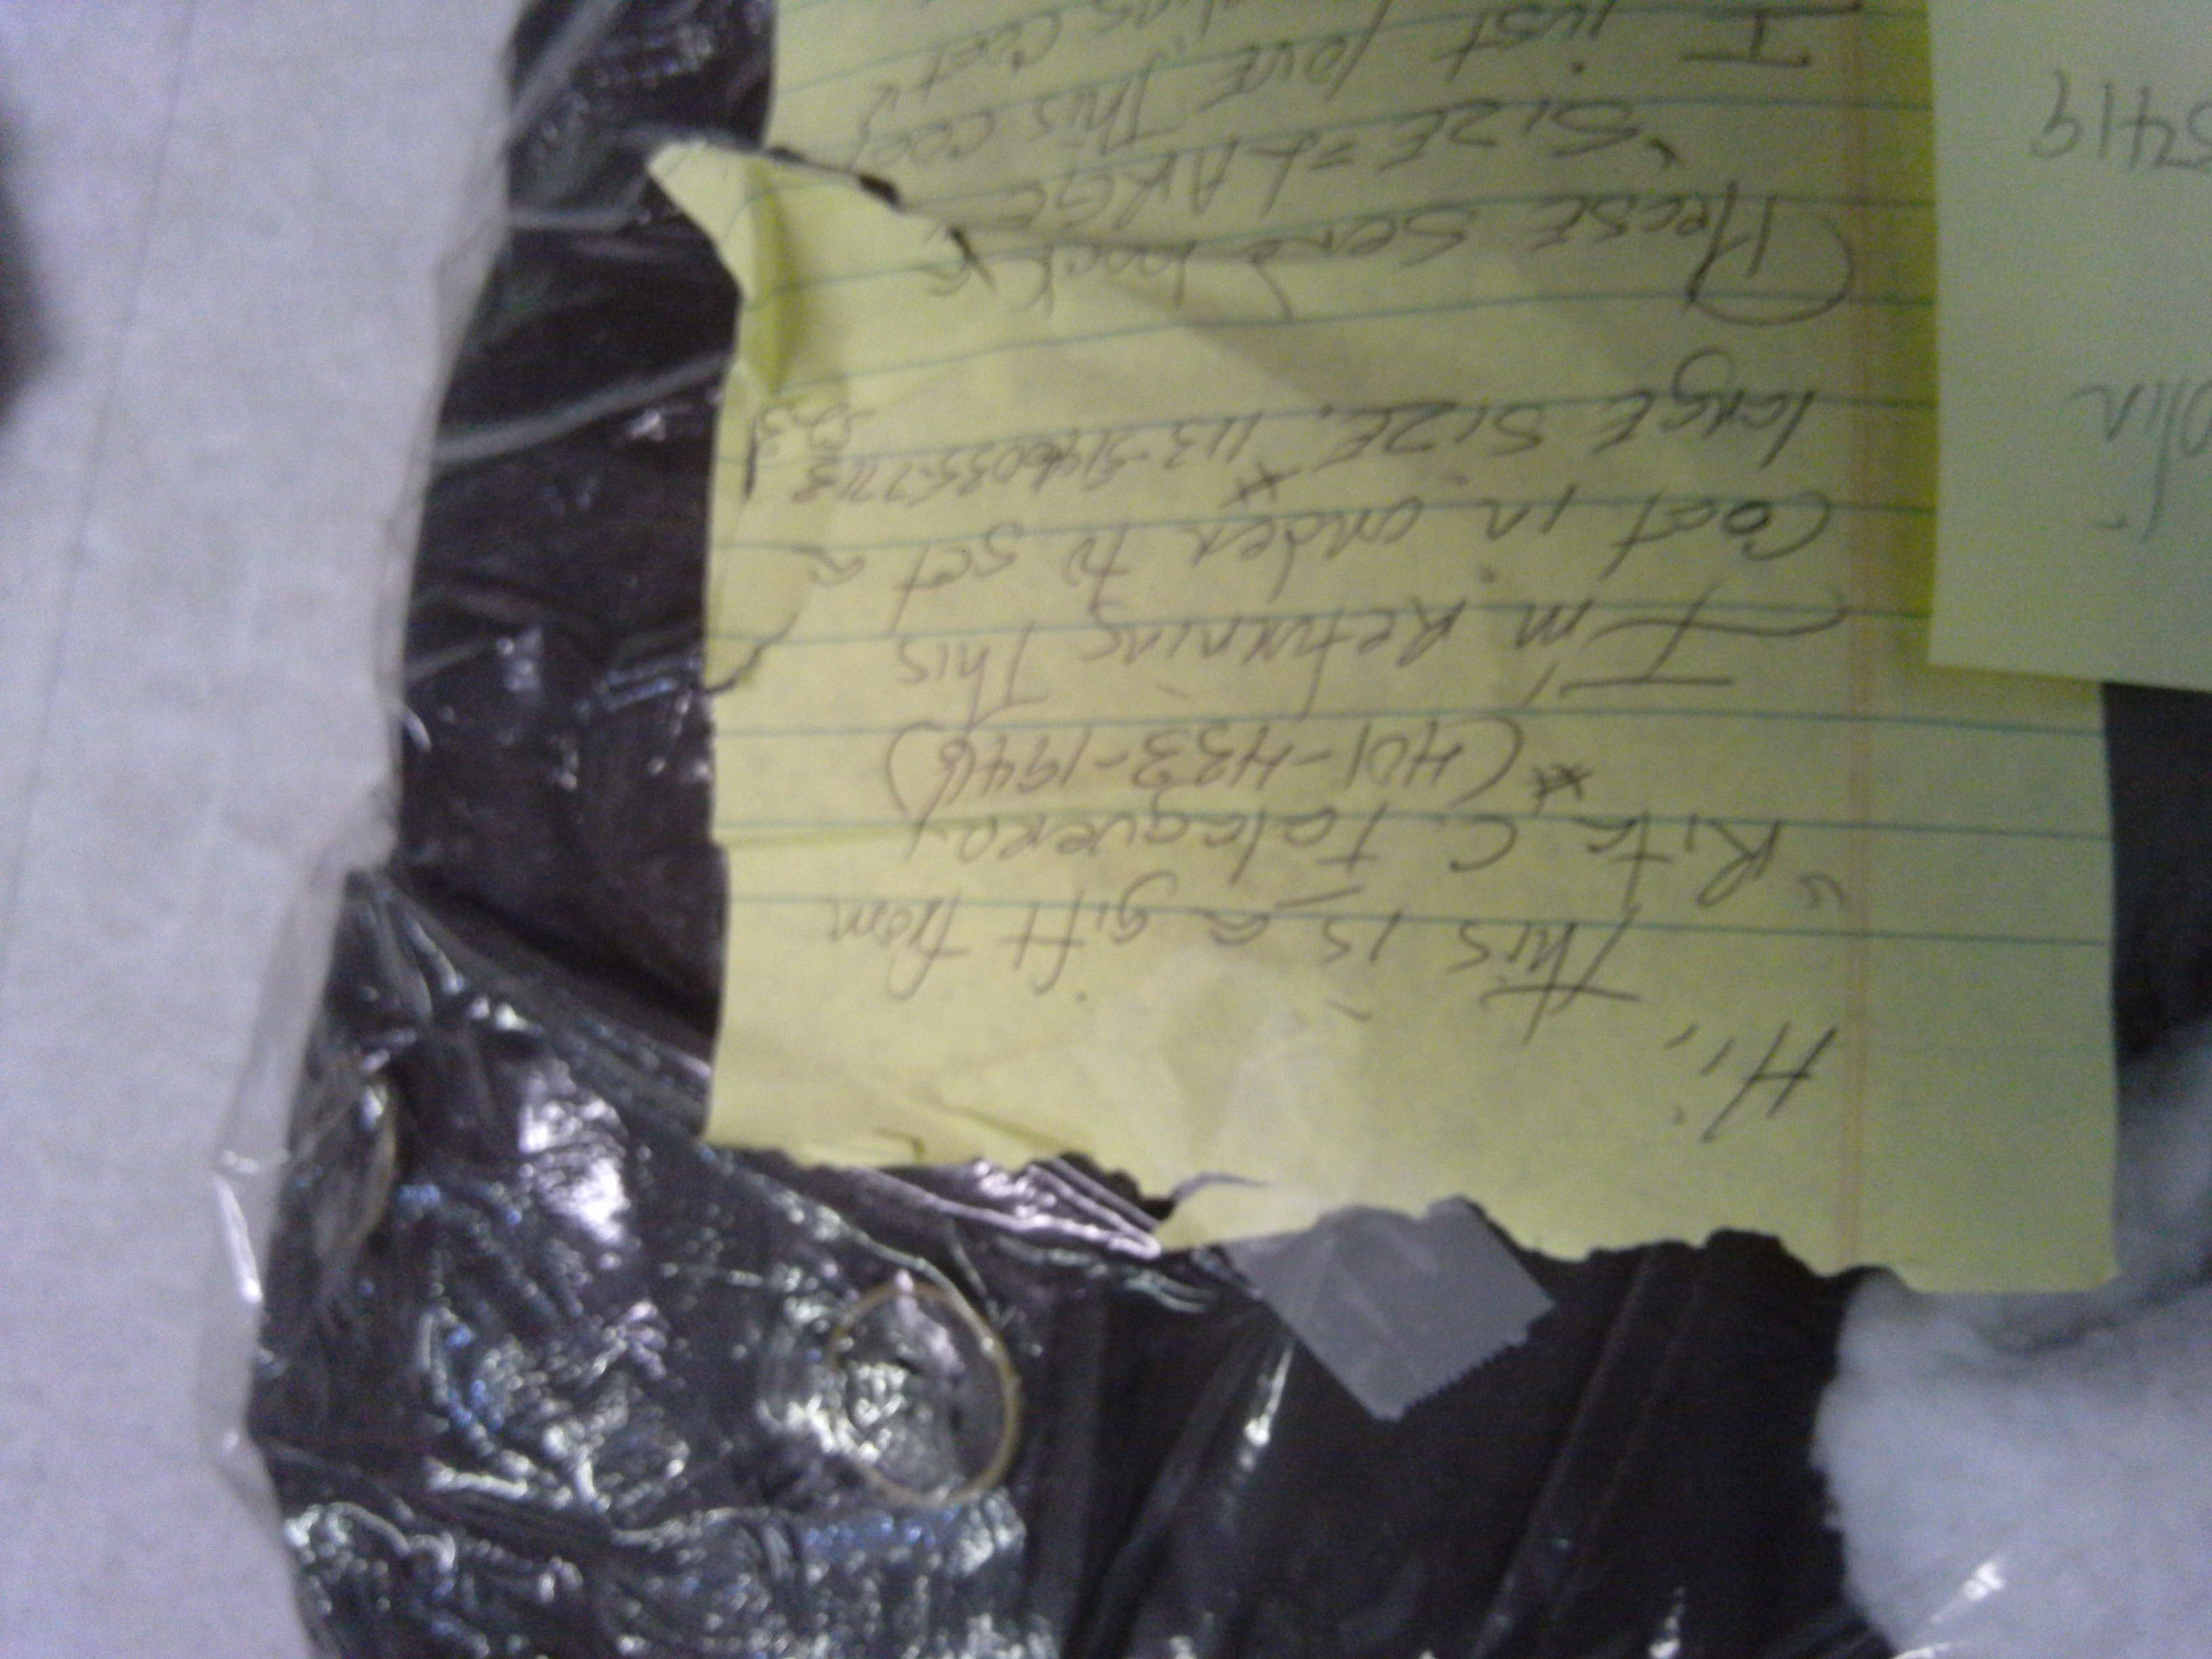 Hi,
This is a gift from
"Rita C. Talaquera,
* (401-433-1946)
I'm Returning This
Coat in order to get a
large SIZE. 113-5146035-77183
Please send back
"SIZE = LARGE
I just love This coat
5419